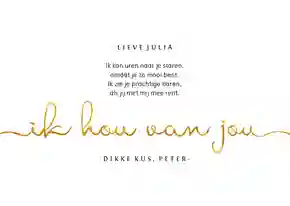 LIEVE JULIA
Ik kan uren naar je staren,
omdat je zo mooi bent.
Ik zie je prachtige haren,
als jij met mij mee rent.
ik hou van jou
DIKKE KUS, PETER-